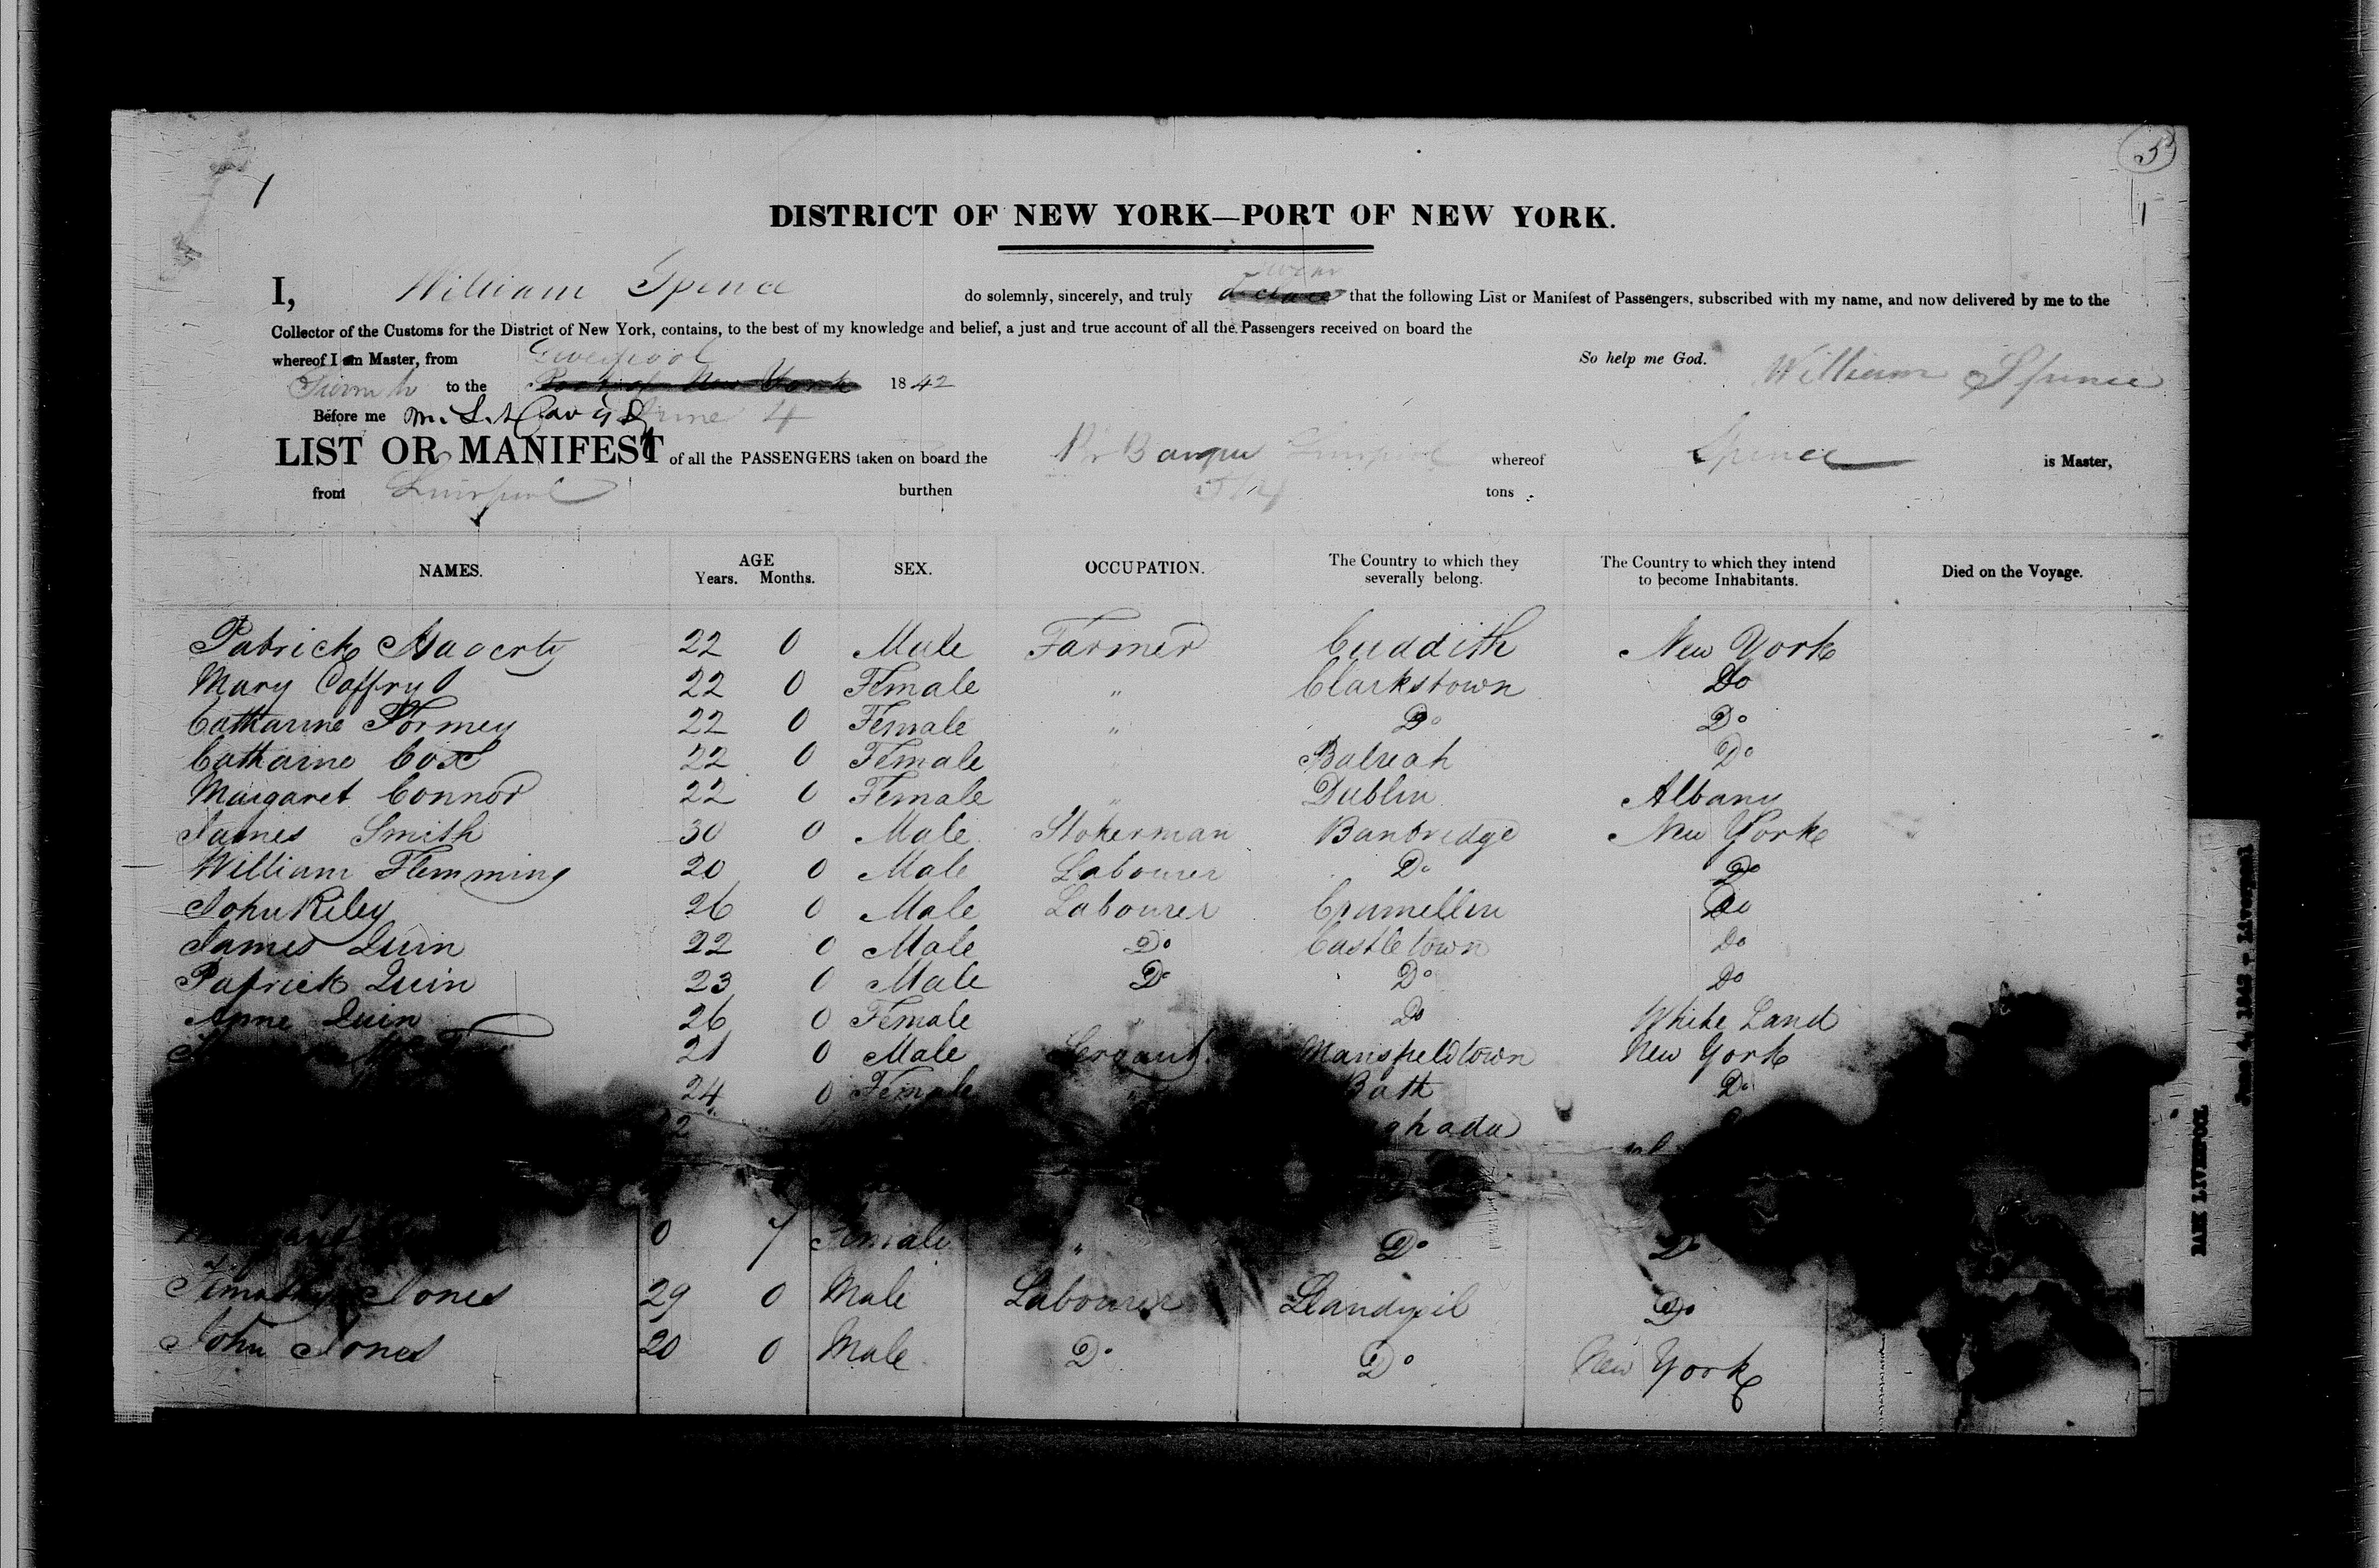 1
5
1
DISTRICT OF NEW YORK—PORT OF NEW YORK.
I, William Spence do solemnly, sincerely, and truly swear that the following List or Manifest of Passengers, subscribed with my name, and now delivered by me to the
Collector of the Customs for the District of New York, contains, to the best of my knowledge and belief, a just and true account of all the Passengers received on board the
whereof I am Master, from Liverpool So help me God. William Spence
to the Port of New York 1842
Before me June 4
LIST OR MANIFEST of all the PASSENGERS taken on board the Br Barque Liverpool whereof Spence is Master,
from Liverpool burthen tons
NAMES. AGE Years. Months. SEX. OCCUPATION. The Country to which they severally belong. The Country to which they intend to become Inhabitants. Died on the Voyage.
Patrick Hagerty 22 0 Male Farmer Cuddith New York
Mary Caffry 22 0 Female " Clarkstown Do
Catharine Tormey 22 0 Female " Do Do
Catharine Cox 22 0 Female " Balreah Do
Margaret Connor 22 0 Female " Dublin Albany
James Smith 30 0 Male Stokerman Banbridge New York
William Flemming 20 0 Male Labourer Do Do
John Riley 26 0 Male Labourer Crumellin Do
James Quin 22 0 Male Do Castletown Do
Patrick Quin 23 0 Male Do Do Do
Anne Quin 26 0 Female " Do White Land
21 0 Male Servant Mansfieldtown New York
24 0 Female " Bath Do
0 7 Female " Do Do
Timothy Jones 29 0 Male Labourer Do
John Jones 20 0 Male Do Do New York
BAR LIVERPOOL
June 4, 1842 - Liverpool